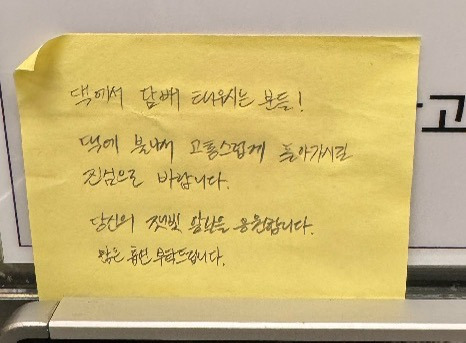 댁에서 담배 태우시는 분들!
댁에 불나서 고통스럽게 돌아가시길
진심으로 바랍니다.
당신의 잿빛 앞날을 응원합니다.
많은 흡연 부탁드립니다.
고